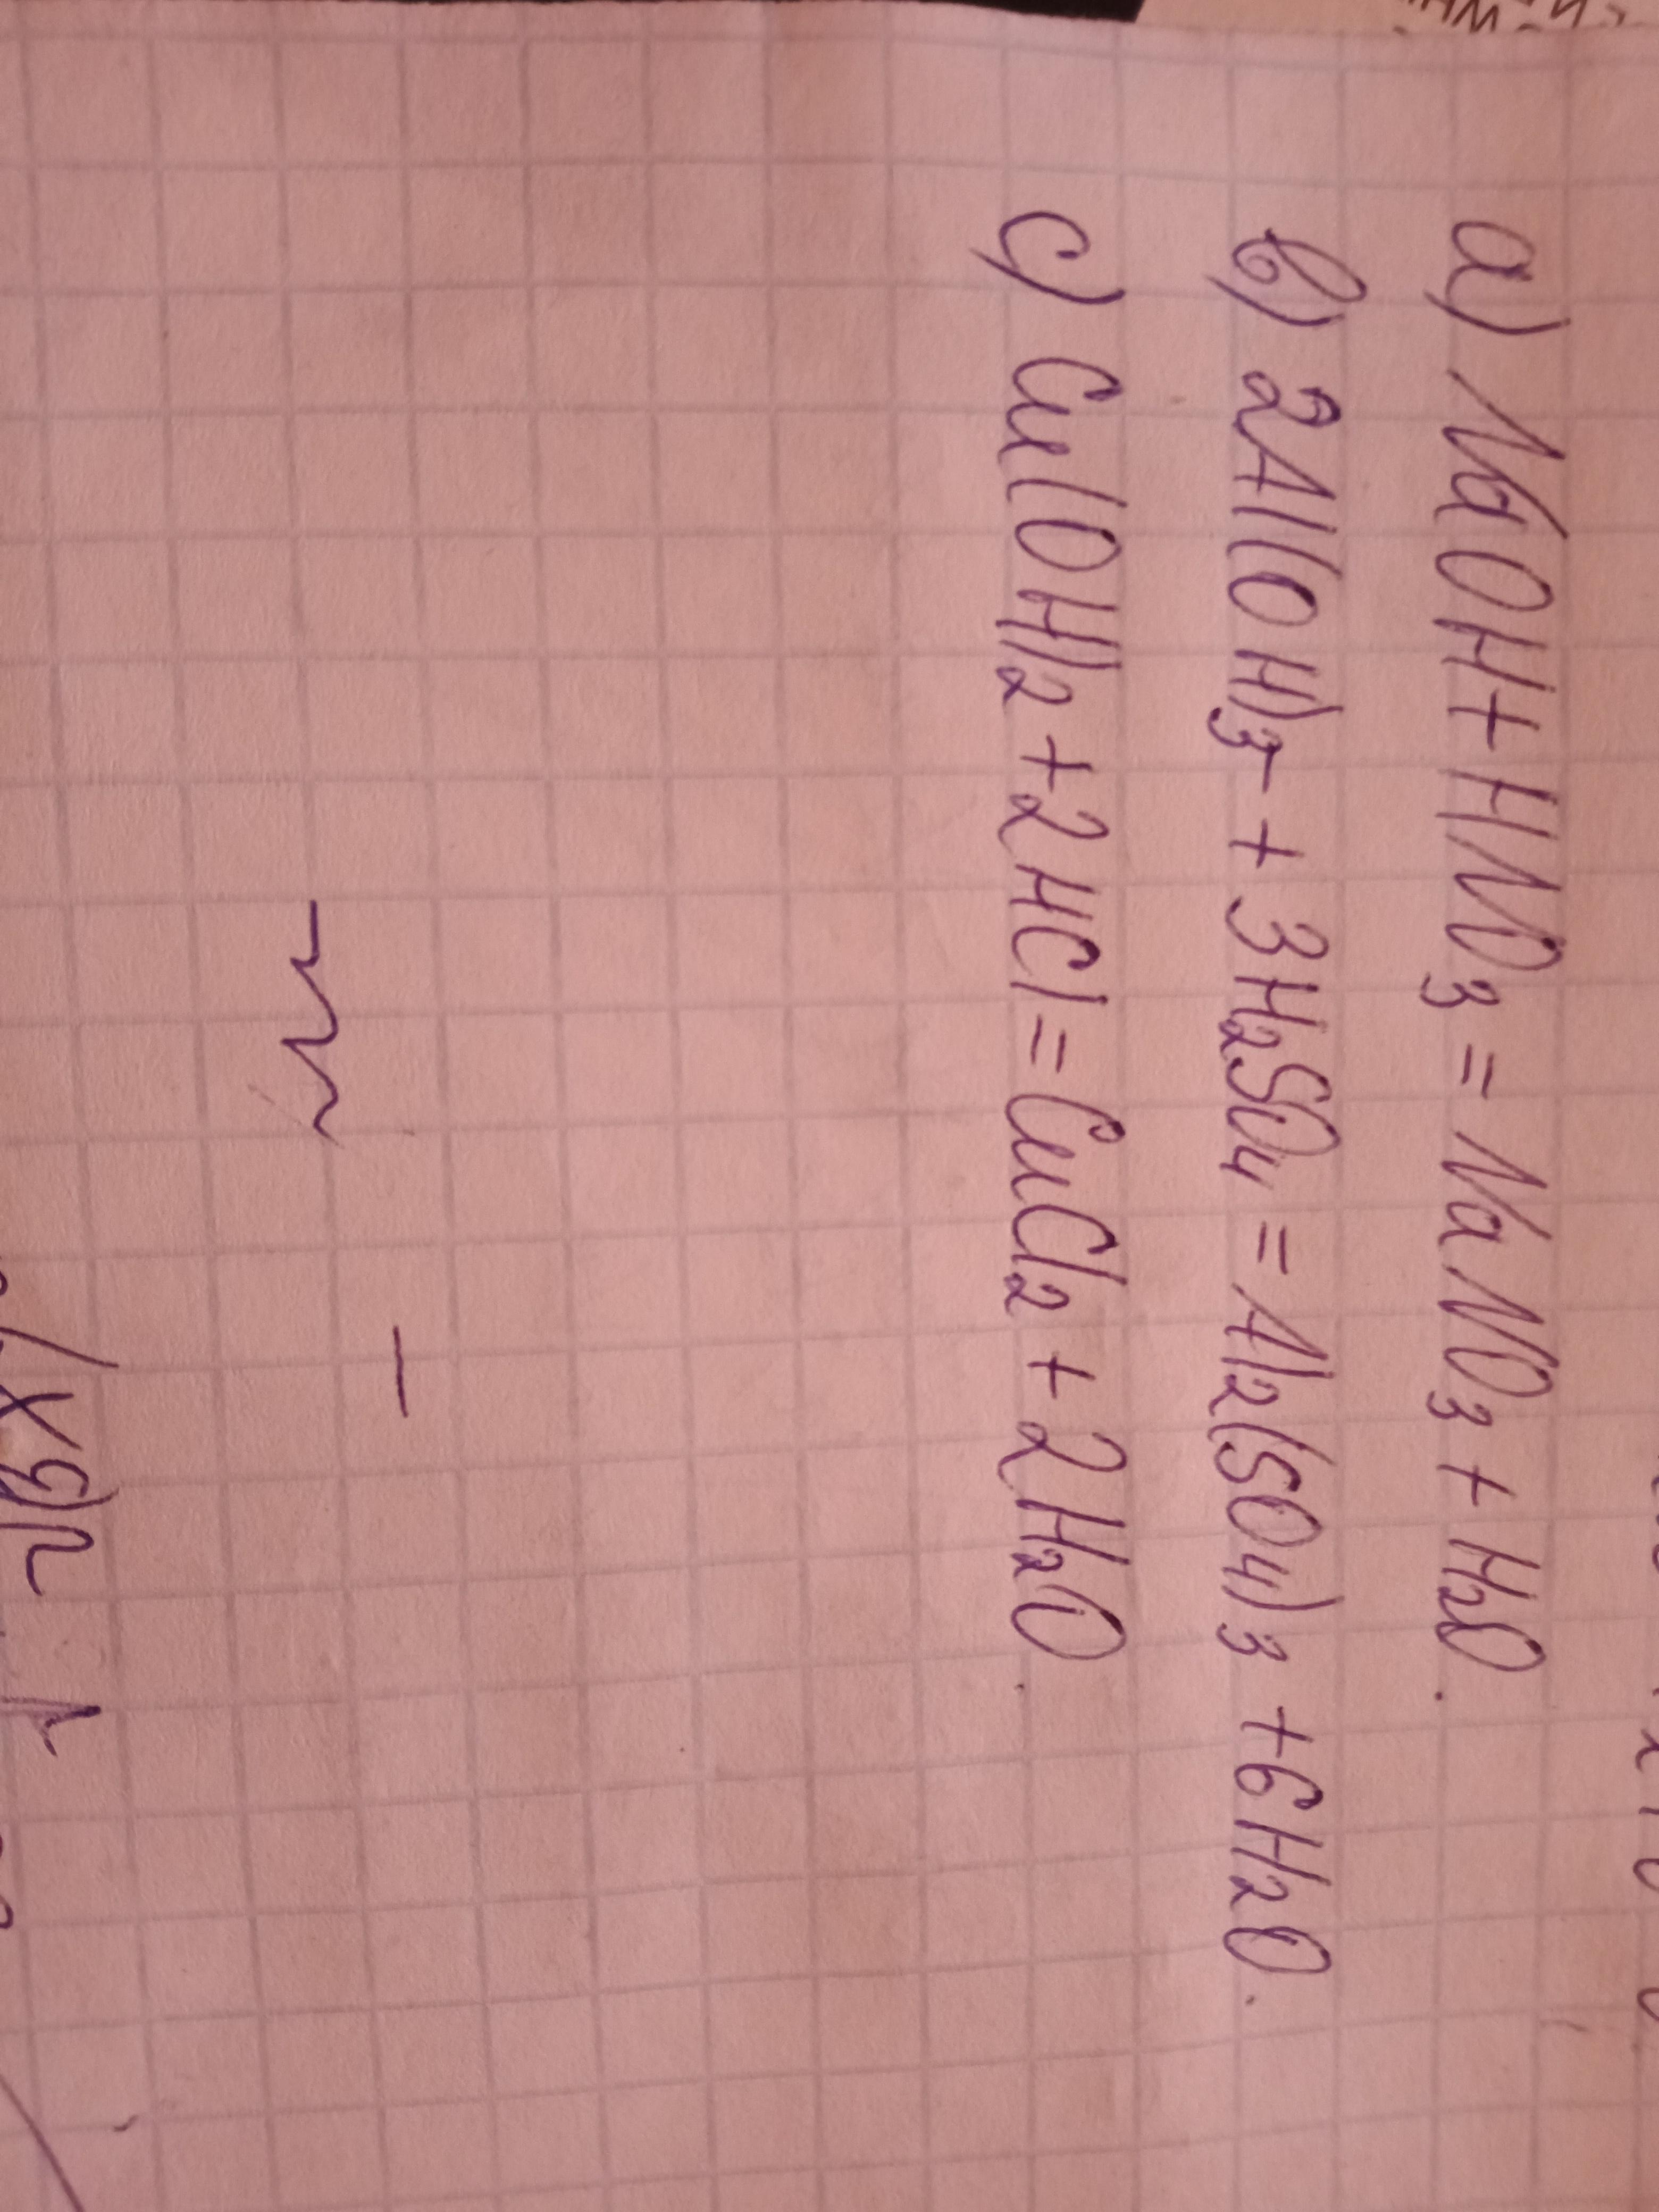 a) NaOH + HNO₃ = NaNO₃ + H₂O.
b) 2Al(OH)₃ + 3H₂SO₄ = Al₂(SO₄)₃ + 6H₂O.
c) Cu(OH)₂ + 2HCl = CuCl₂ + 2H₂O.